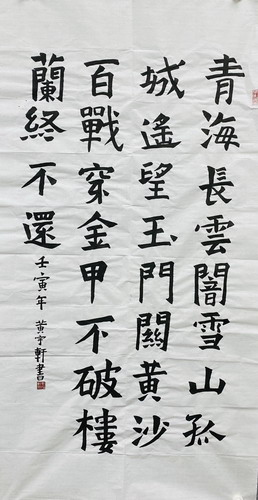 青海長雲闇雪山孤
城遙望玉門關黃沙
百戰穿金甲不破樓
蘭終不還
壬寅年黃宇軒書